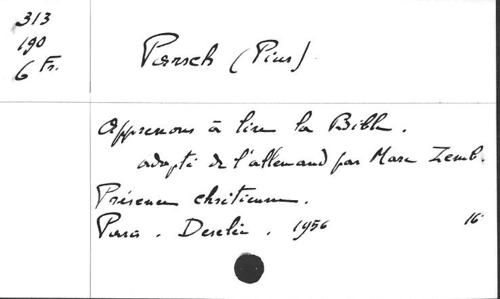 313
190
6 Fr.
Parsch (Pius)
Apprenons à lire la Bible.
adapté de l'allemand par Marc Zemb.
Présence chrétienne.
Paris. Desclée. 1956 16